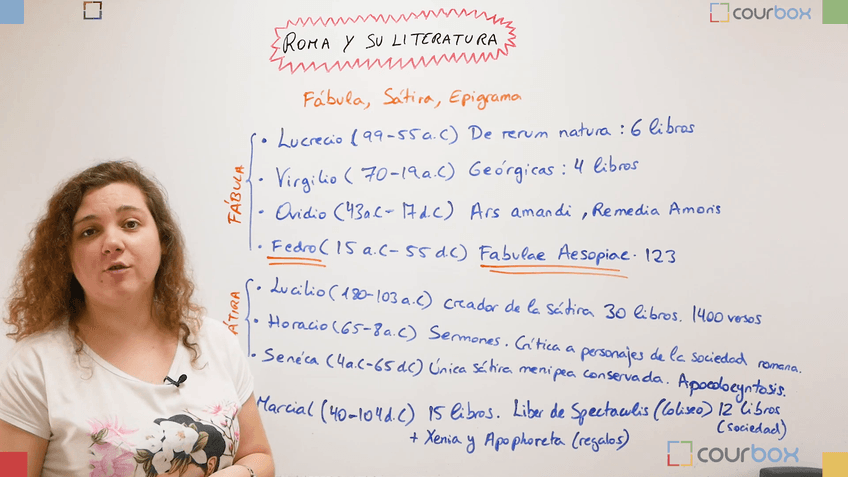 courbox
ROMA Y SU LITERATURA
Fábula, Sátira, Epigrama
FÁBULA
• Lucrecio (99-55a.C) De rerum natura: 6 libros
• Virgilio (70-19a.C) Geórgicas: 4 libros
• Ovidio (43a.C-17d.C) Ars amandi, Remedia Amoris
• Fedro (15a.C-55d.C) Fabulae Aesopiae. 123
ÁTIRA
• Lucilio (180-103a.C) creador de la sátira 30 libros. 1400 vesos
• Horacio (65-8a.C) Sermones. Crítica a personajes de la sociedad romana.
• Senéca (4a.C-65d.C) Única sátira menipea conservada. Apocolocyntosis.
Marcial (40-104d.C) 15 libros. Liber de Spectaculis (Coliseo) 12 libros
(sociedad)
+ Xenia y Apophoreta (regalos)
courbox